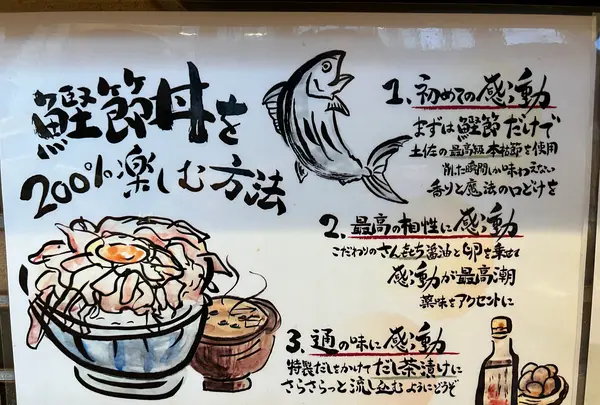 鰹節丼を
200%楽しむ方法
1、初めての感動
まずは鰹節だけで
土佐の最高級本枯節を使用
削した瞬間しか味わえない
香りと魔法の口どけを
2、最高の相性に感動
こだわりのさんもち醤油と卵を乗せて
感動が最高潮
薬味をアクセントに
3、通の味に感動
特製だしをかけてだし茶漬けに
さらさらっと流し込むようにどうぞ